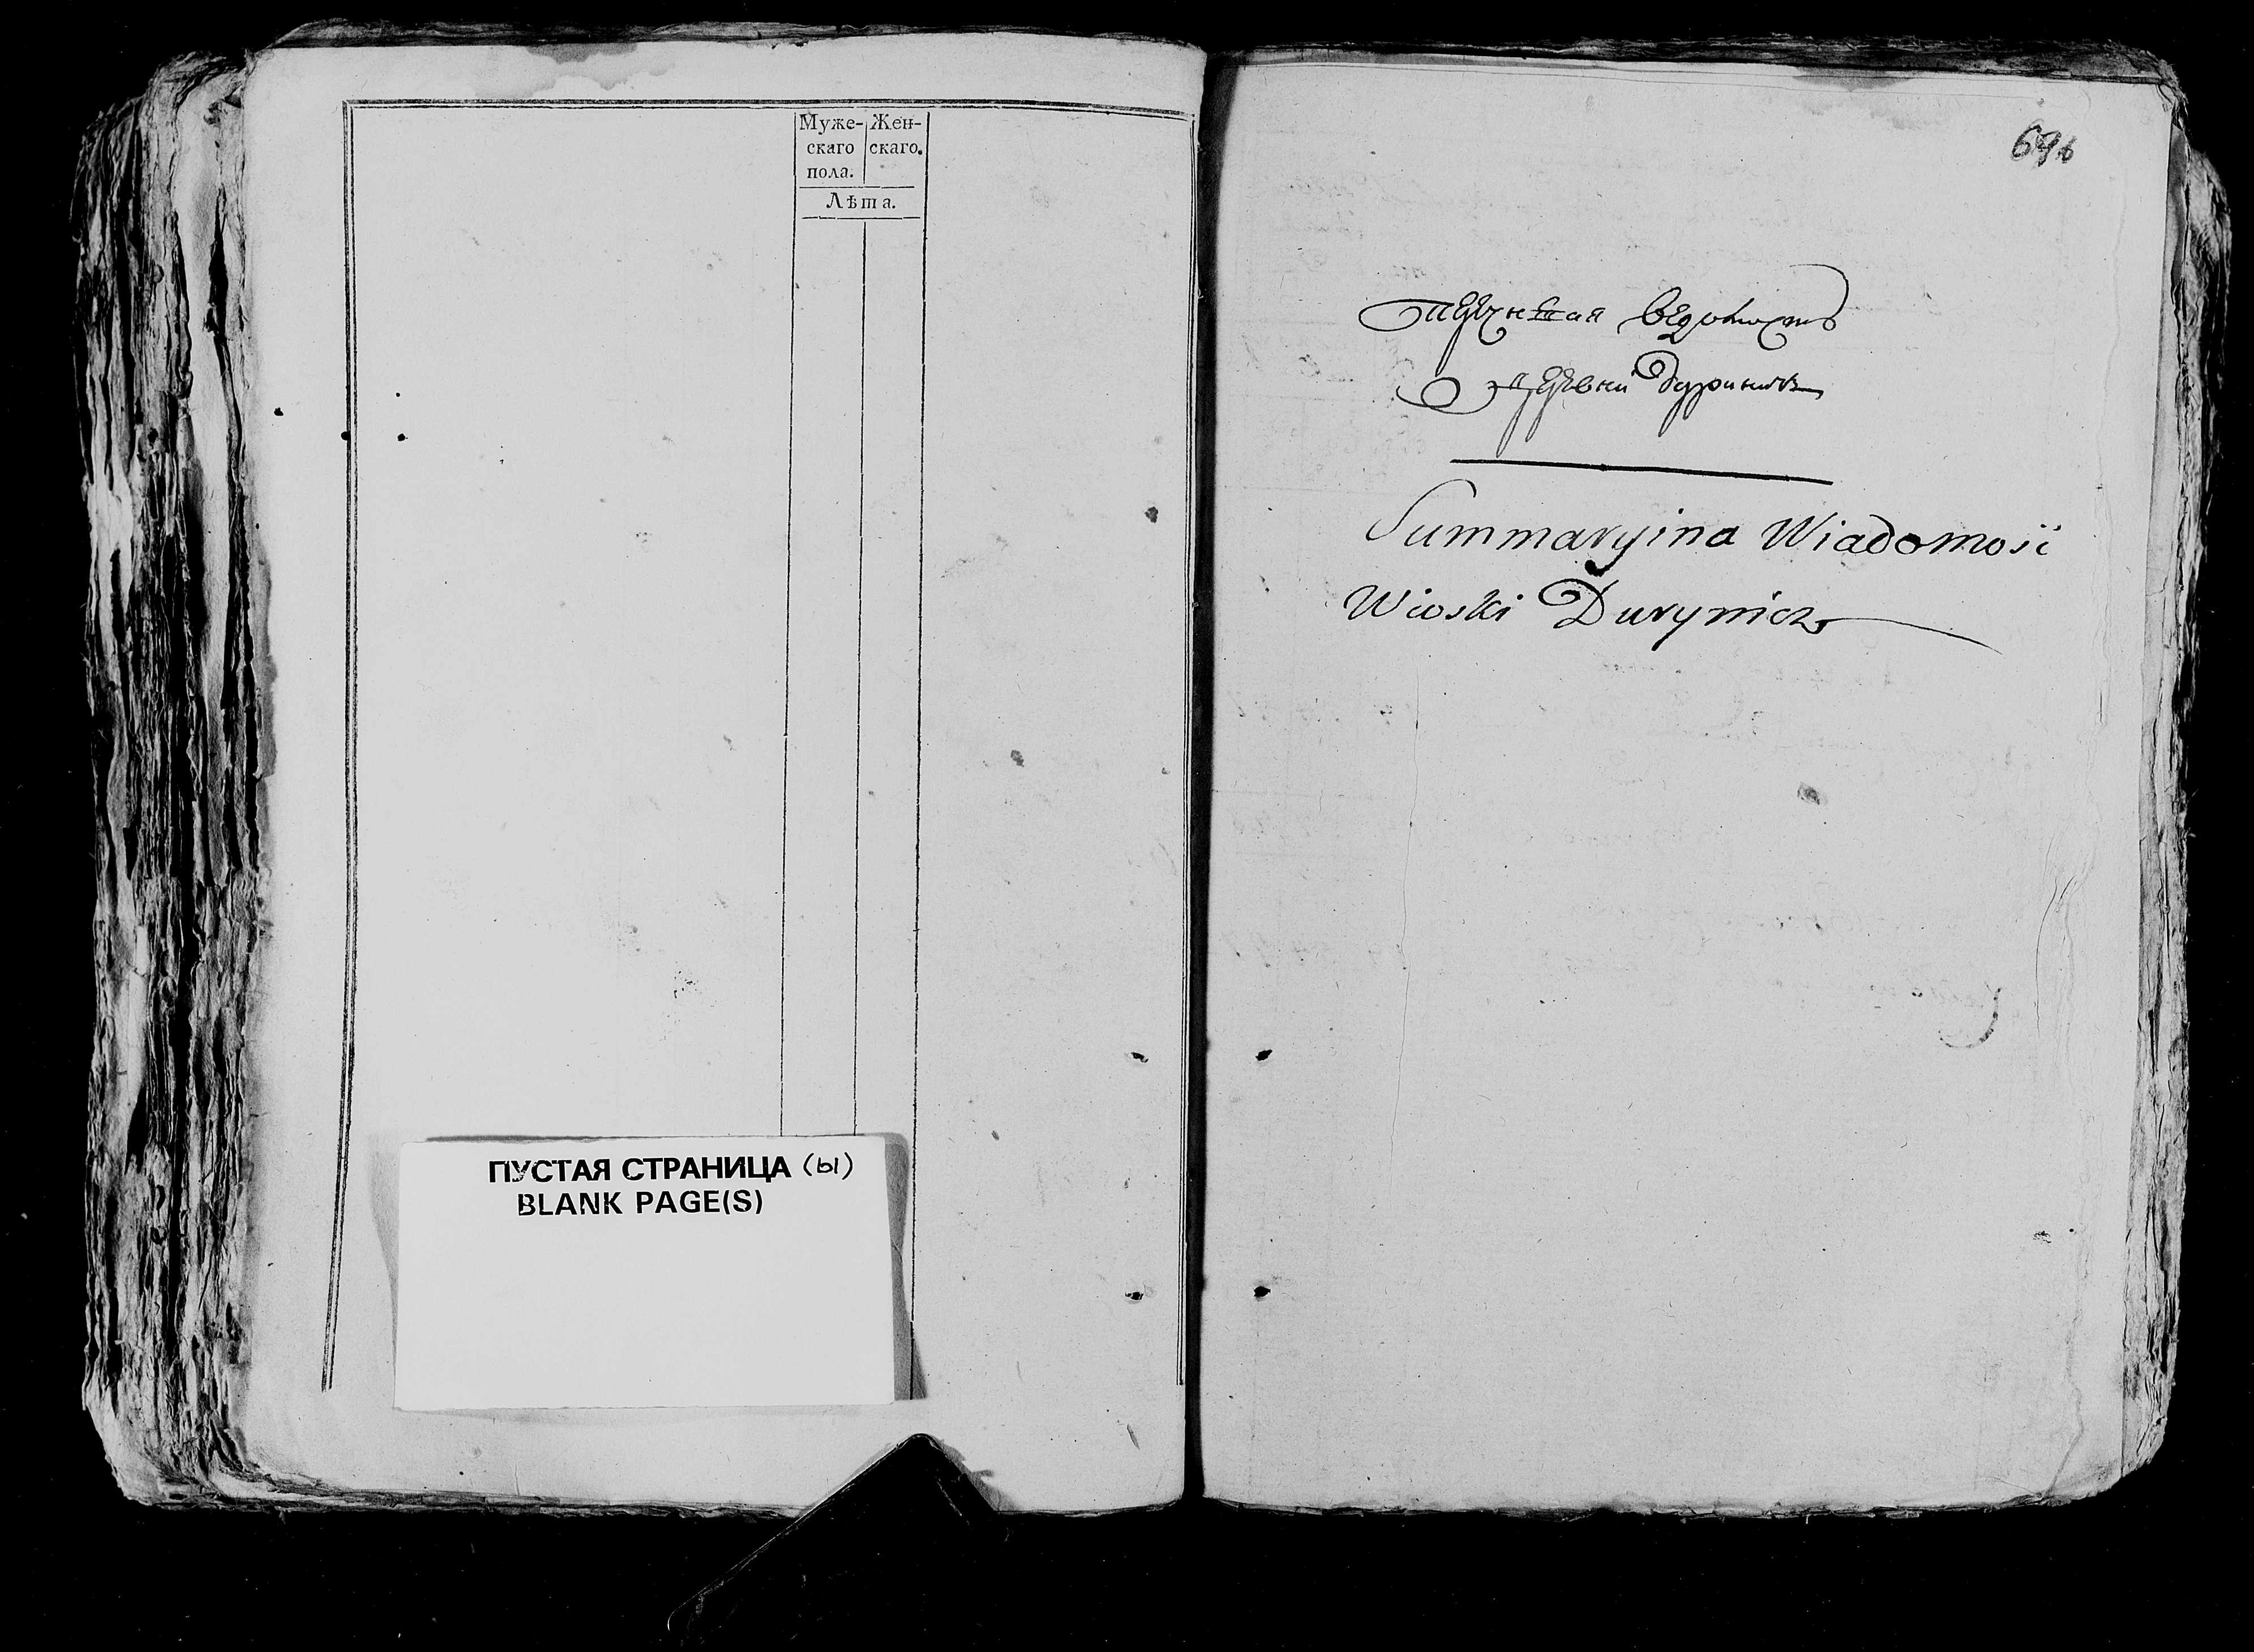 Муже-
скаго
пола.
Жен-
скаго.
Лѣта.
ПУСТАЯ СТРАНИЦА (ы)
BLANK PAGE(S)
696
ведомость
деревни Дуриничъ
Summaryina Wiadomość
Wioski Durynicz